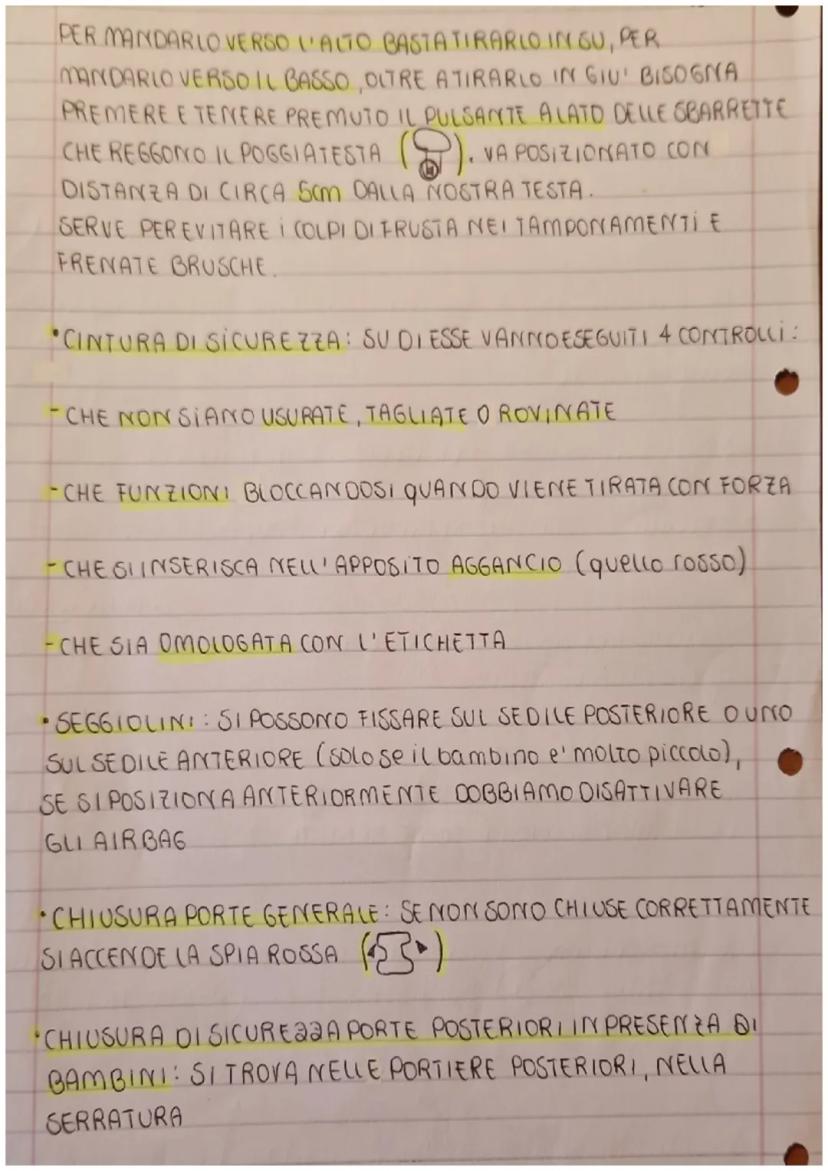 PER MANDARLO VERSO L'ALTO BASTA TIRARLO IN SU, PER
MANDARLO VERSO IL BASSO, OLTRE A TIRARLO IN GIU' BISOGNA
PREMERE E TENERE PREMUTO IL PULSANTE A LATO DELLE SBARRETTE
CHE REGGONO IL POGGIATESTA ( ). VA POSIZIONATO CON
DISTANZA DI CIRCA 5cm DALLA NOSTRA TESTA.
SERVE PER EVITARE i COLPI DI FRUSTA NEI TAMPONAMENTI E
FRENATE BRUSCHE.
•CINTURA DI SICUREZZA: SU DI ESSE VANNO ESEGUITI 4 CONTROLLI:
-CHE NON SIANO USURATE, TAGLIATE O ROVINATE
-CHE FUNZIONI BLOCCANDOSI QUANDO VIENE TIRATA CON FORZA
-CHE SI INSERISCA NELL'APPOSITO AGGANCIO (quello rosso)
-CHE SIA OMOLOGATA CON L'ETICHETTA
•SEGGIOLINI: SI POSSONO FISSARE SUL SEDILE POSTERIORE O UNO
SUL SEDILE ANTERIORE (solo se il bambino e' molto piccolo),
SE SI POSIZIONA ANTERIORMENTE DOBBIAMO DISATTIVARE
GLI AIRBAG
•CHIUSURA PORTE GENERALE: SE NON SONO CHIUSE CORRETTAMENTE
SI ACCENDE LA SPIA ROSSA ( )
•CHIUSURA DI SICUREZZA PORTE POSTERIORI IN PRESENZA DI
BAMBINI: SI TROVA NELLE PORTIERE POSTERIORI, NELLA
SERRATURA